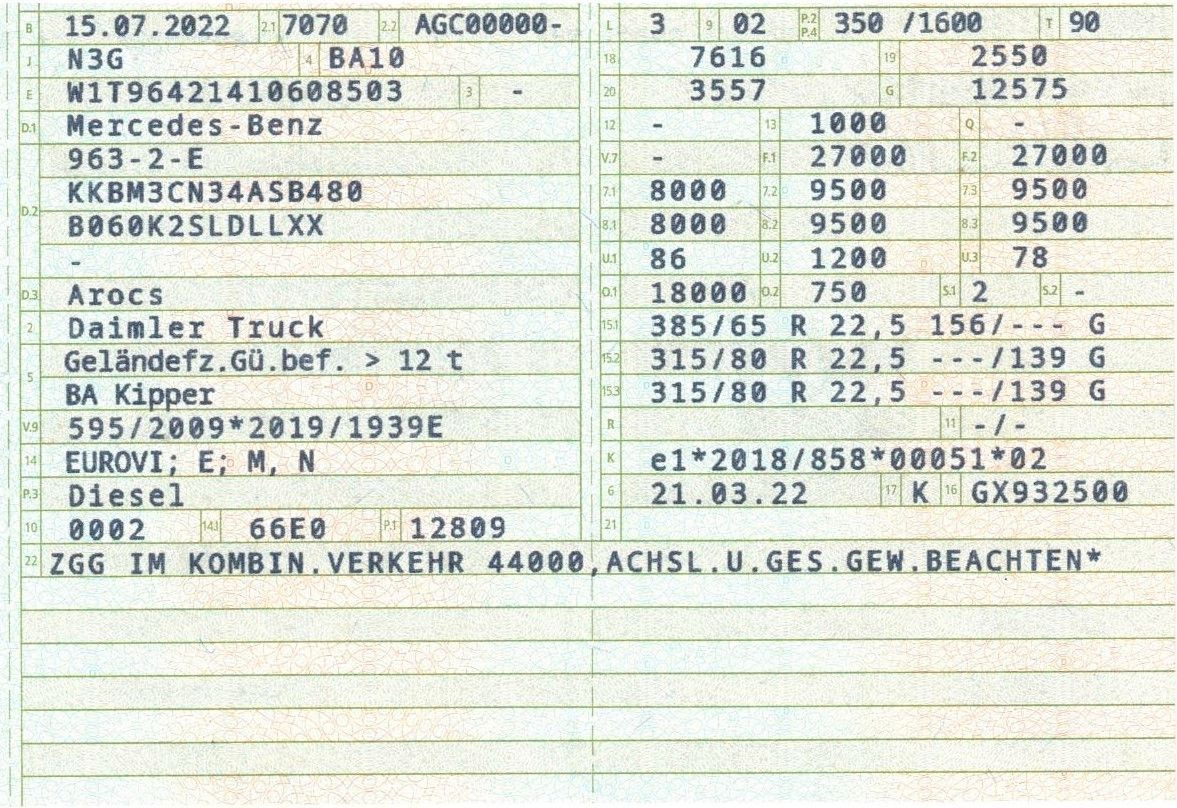 B 15.07.2022 2.1 7070 2.2 AGC00000-
J N3G 4 BA10
E W1T96421410608503 3 -
D.1 Mercedes-Benz
963-2-E
D.2 KKBM3CN34ASB480
B060K2SLDLLXX
-
D.3 Arocs
2 Daimler Truck
5 Geländefz.Gü.bef. > 12 t
BA Kipper
V.9 595/2009*2019/1939E
14 EUROVI; E; M, N
P.3 Diesel
10 0002 14.1 66E0 P.1 12809
L 3 9 02 P.2 P.4 350 /1600 T 90
18 7616 19 2550
20 3557 G 12575
12 - 13 1000 Q -
V.7 - F.1 27000 F.2 27000
7.1 8000 7.2 9500 7.3 9500
8.1 8000 8.2 9500 8.3 9500
U.1 86 U.2 1200 U.3 78
O.1 18000 O.2 750 S.1 2 S.2 -
15.1 385/65 R 22,5 156/--- G
15.2 315/80 R 22,5 ---/139 G
15.3 315/80 R 22,5 ---/139 G
R 11 -/-
K e1*2018/858*00051*02
6 21.03.22 17 K 16 GX932500
21
22 ZGG IM KOMBIN.VERKEHR 44000,ACHSL.U.GES.GEW.BEACHTEN*